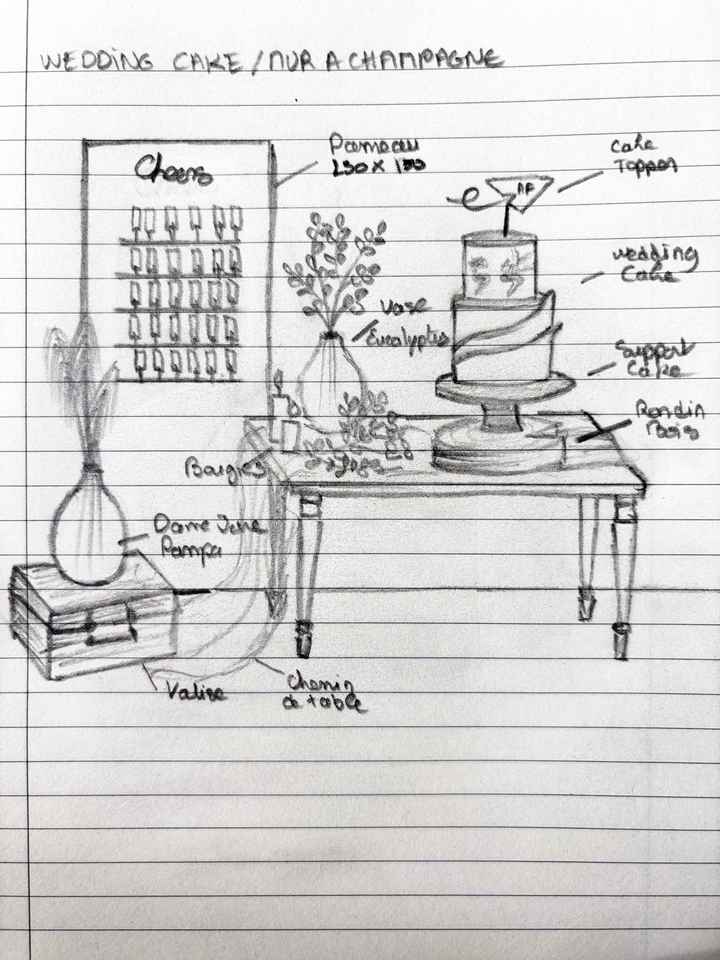 WEDDING CAKE / MUR A CHAMPAGNE
Panneau
Cheers
Cake
Topper
wedding
Cake
Vase
Eucalyptus
Support
Cake
Rondin
Bois
Bougies
Dame Jeanne
Pampa
Valise
Chemin
de table